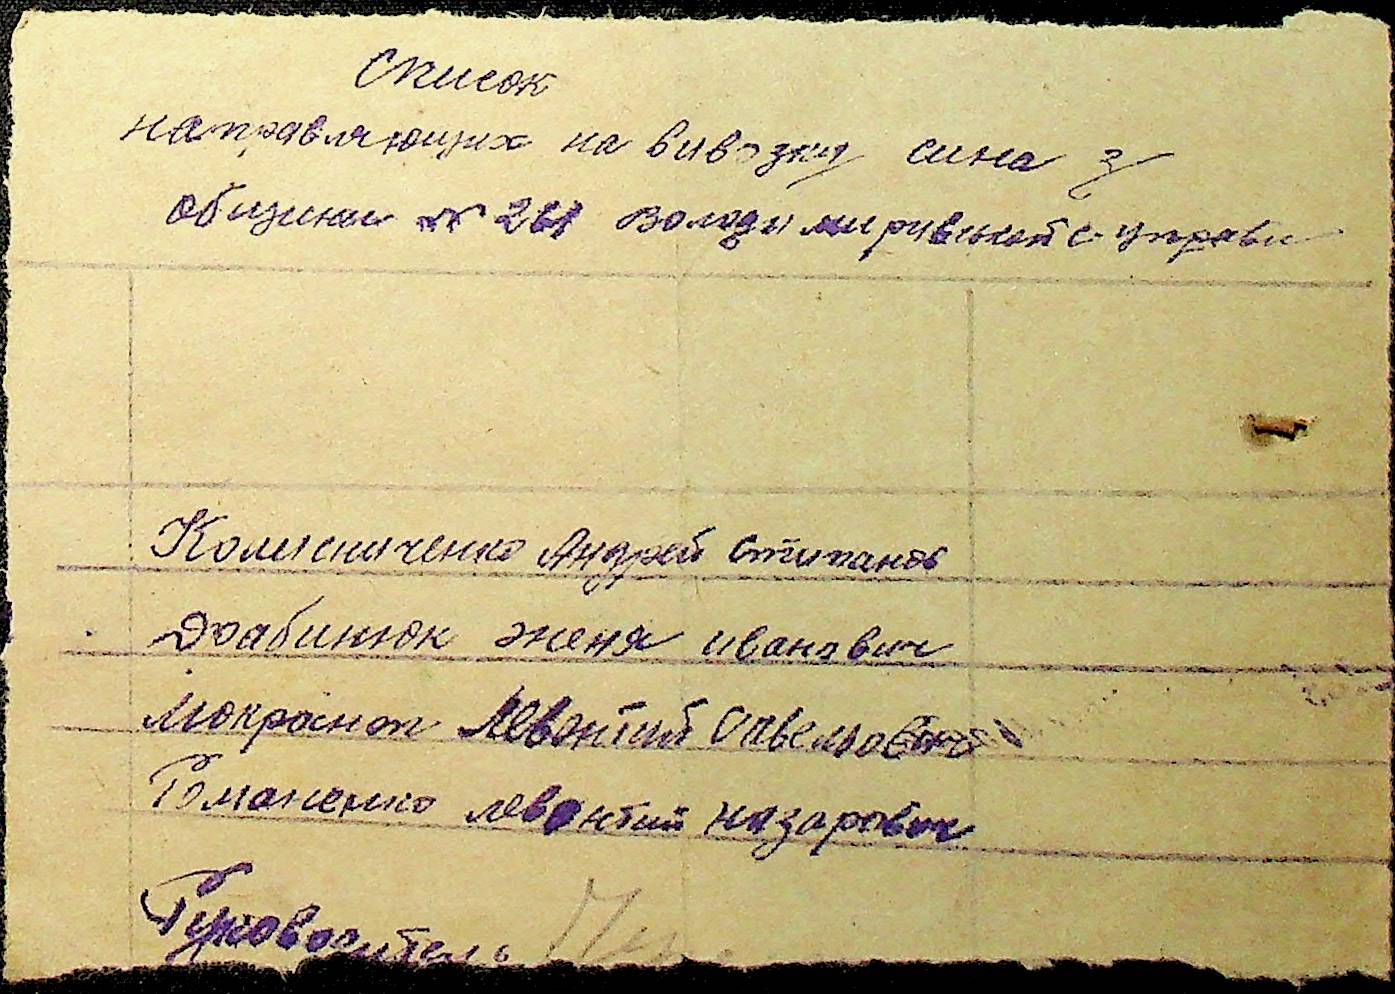 Список
направляющих на вивозку сина з
общини № 261 Володимирівської с. управи
Колисниченко Андрей Стипанов
Драбинюк женя иванович
Мокраноп Левонтий Савельович
Романенко левонтий назарович
Руководитель